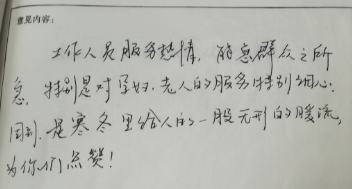 意见内容:
工作人员服务热情,能急群众之所
急,特别是对孕妇、老人的服务特别细心、
周到,是寒冬里给人的一股无形的暖流,
为你们点赞!